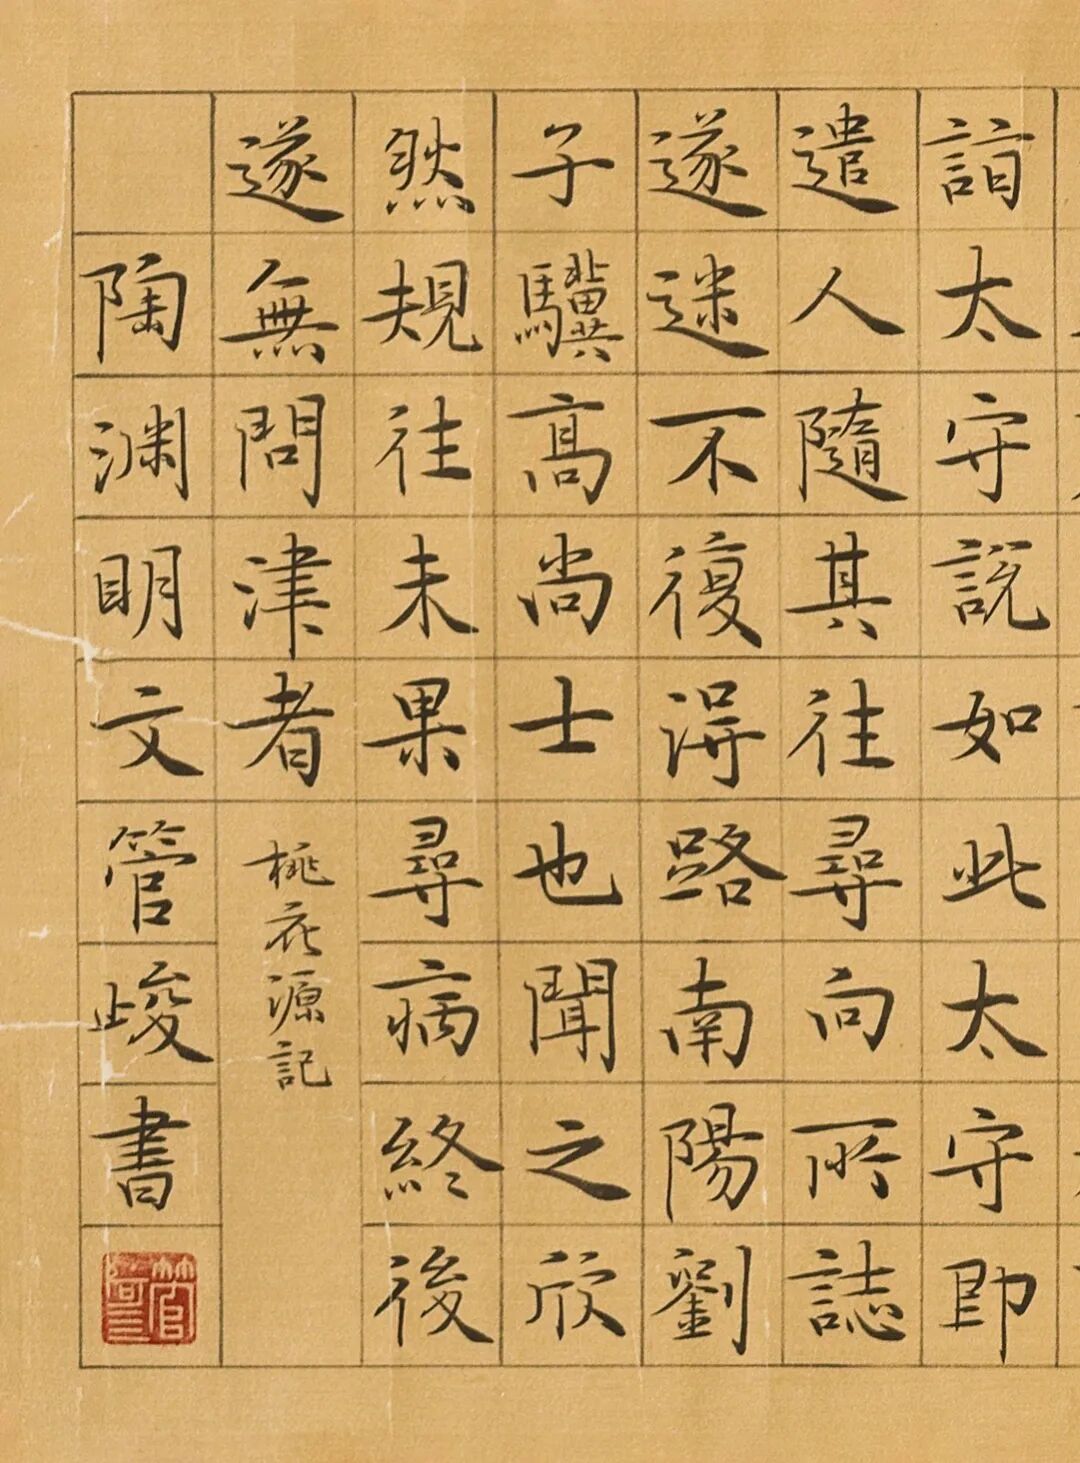 詣太守説如此太守即
遣人隨其往尋向所誌
遂迷不復得路南陽劉
子驥高尚士也聞之欣
然規往未果尋病終後
遂無問津者
桃花源記
陶渊明文管峻書